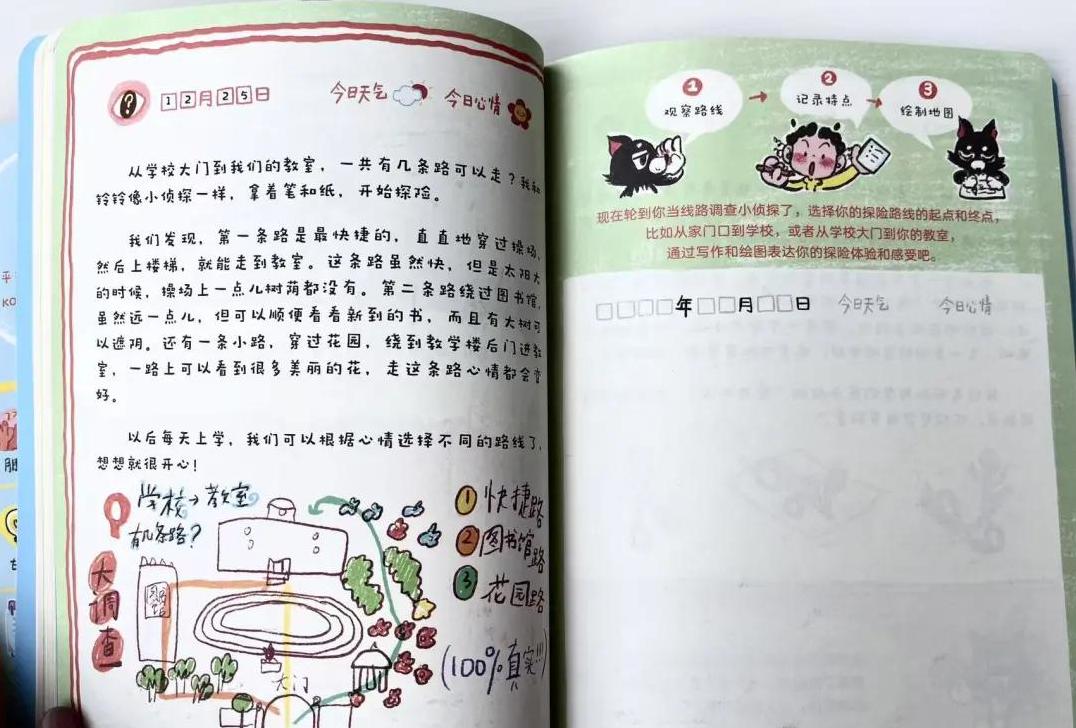 12月25日 今日天气 今日心情
从学校大门到我们的教室，一共有几条路可以走？我和
铃铃像小侦探一样，拿着笔和纸，开始探险。
我们发现，第一条路是最快捷的，直直地穿过操场，
然后上楼梯，就能走到教室。这条路虽然快，但是太阳大
的时候，操场上一点儿树荫都没有。第二条路绕过图书馆，
虽然远一点儿，但可以顺便看看新到的书，而且有大树可
以遮阴。还有一条小路，穿过花园，绕到教学楼后门进教
室，一路上可以看到很多美丽的花，走这条路心情都会变
好。
以后每天上学，我们可以根据心情选择不同的路线了，
想想就很开心！
学校→教室
有几条路？
大调查
大门
① 快捷路
② 图书馆路
③ 花园路
(100%真实!!!)
① 观察路线
② 记录特点
③ 绘制地图
现在轮到你当线路调查小侦探了，选择你的探险路线的起点和终点，
比如从家门口到学校，或者从学校大门到你的教室，
通过写作和绘图表达你的探险体验和感受吧。
□□□□年□□月□□日 今日天气 今日心情